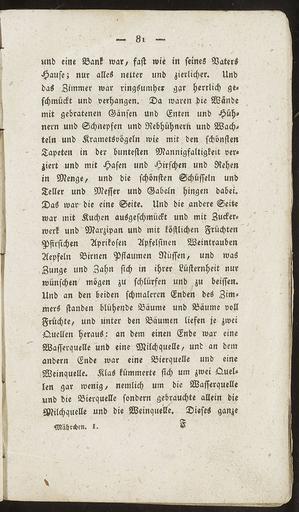 — 81 —
und eine Bank war, fast wie in seines Vaters
Hause; nur alles netter und zierlicher. Und
das Zimmer war ringsumher gar herrlich ge-
schmückt und verhangen. Da waren die Wände
mit gebratenen Gänsen und Enten und Hüh-
nern und Schnepfen und Rebhühnern und Wach-
teln und Krametsvögeln wie mit den schönsten
Tapeten in der buntesten Mannigfaltigkeit ver-
ziert und mit Hasen und Hirschen und Rehen
in Menge, und die schönsten Schüsseln und
Teller und Messer und Gabeln hingen dabei.
Das war die eine Seite. Und die andere Seite
war mit Kuchen ausgeschmückt und mit Zucker-
werk und Marzipan und mit köstlichen Früchten
Pfirsichen Aprikosen Apfelsinen Weintrauben
Aepfeln Birnen Pflaumen Nüssen, und was
Zunge und Zahn sich in ihrer Lüsternheit nur
wünschen mögen zu schlürfen und zu beissen.
Und an den beiden schmaleren Enden des Zim-
mers standen blühende Bäume und Bäume voll
Früchte, und unter den Bäumen liefen je zwei
Quellen heraus: an dem einen Ende war eine
Wasserquelle und eine Milchquelle, und an dem
andern Ende war eine Bierquelle und eine
Weinquelle. Klas kümmerte sich um zwei Quel-
len gar wenig, nemlich um die Wasserquelle
und die Bierquelle sondern gebrauchte allein die
Milchquelle und die Weinquelle. Dieses ganze
Mährchen. I. F